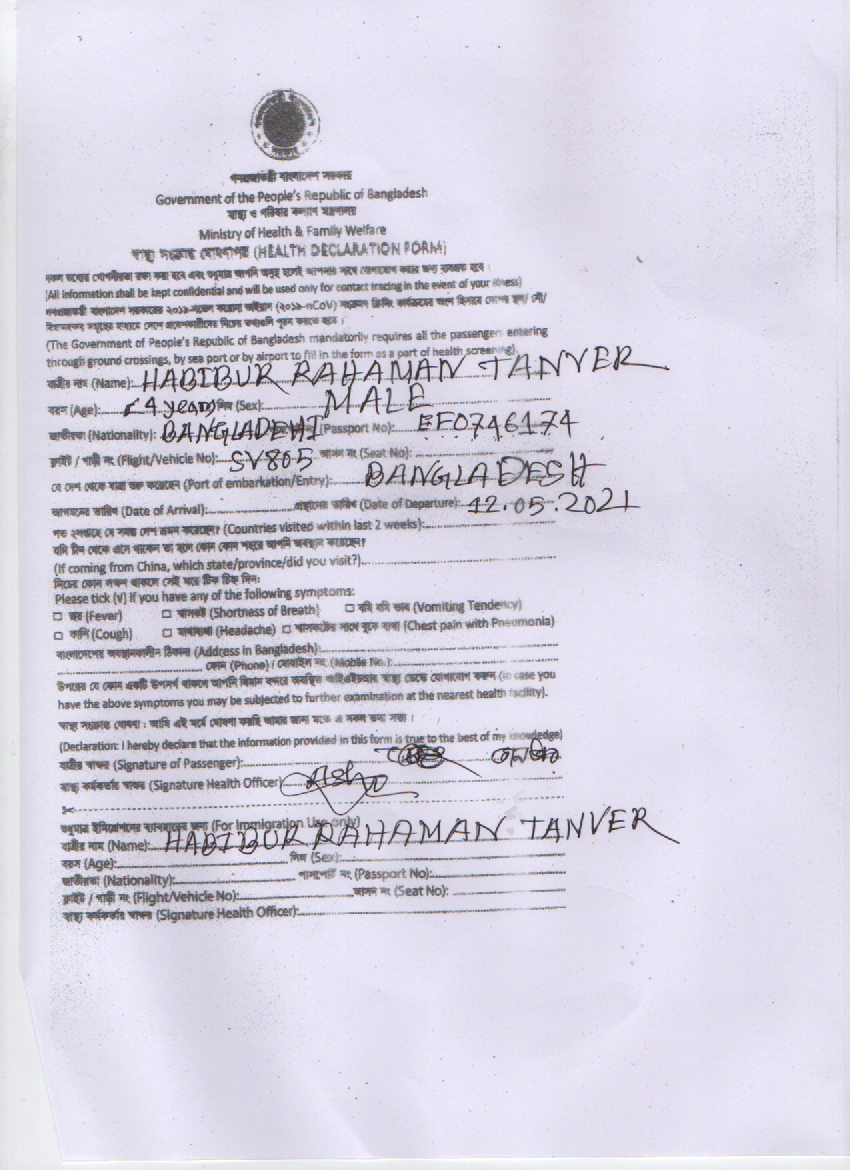 গণপ্রজাতন্ত্রী বাংলাদেশ সরকার
Government of the People's Republic of Bangladesh
স্বাস্থ্য ও পরিবার কল্যাণ মন্ত্রণালয়
Ministry of Health & Family Welfare
স্বাস্থ্য সংক্রান্ত ঘোষণাপত্র (HEALTH DECLARATION FORM)
সকল তথ্যের গোপনীয়তা রক্ষা করা হবে এবং শুধুমাত্র আপনি অসুস্থ হলেই আপনার সাথে যোগাযোগ করার জন্য ব্যবহৃত হবে ।
(All information shall be kept confidential and will be used only for contact tracing in the event of your illness)
গণপ্রজাতন্ত্রী বাংলাদেশ সরকারের ২০১৯-নভেল করোনা ভাইরাস (২০১৯-nCoV) সংক্রমণ স্ক্রিনিং কার্যক্রমের অংশ হিসাবে দেশের স্থল/ নৌ/
(The Government of People's Republic of Bangladesh mandatorily requires all the passengers entering
through ground crossings, by sea port or by airport to fill in the form as a part of health screening).
যাত্রীর নাম (Name): HABIBUR RAHAMAN TANVER
বয়স (Age): 4 years লিঙ্গ (Sex): MALE
জাতীয়তা (Nationality): BANGLADEHI (Passport No): EF0746174
ফ্লাইট / গাড়ী নং (Flight/Vehicle No): SV805 আসন নং (Seat No):
যে দেশ থেকে যাত্রা শুরু করেছেন (Port of embarkation/Entry): BANGLADESH
আগমনের তারিখ (Date of Arrival): প্রস্থানের তারিখ (Date of Departure): 12.05.2021
গত ২সপ্তাহে যে সমস্ত দেশ ভ্রমন করেছেন? (Countries visited within last 2 weeks):
যদি চীন থেকে এসে থাকেন তা হলে কোন কোন শহরে আপনি অবস্থান করেছেন?
(If coming from China, which state/province/did you visit?)
নিচের কোন লক্ষণ থাকলে সেই ঘরে টিক চিহ্ন দিন:
Please tick (√) if you have any of the following symptoms:
□ জ্বর (Fever) □ শ্বাসকষ্ট (Shortness of Breath) □ বমি বমি ভাব (Vomiting Tendency)
□ কাশি (Cough) □ মাথাব্যথা (Headache) □ শ্বাসকষ্টের সাথে বুকে ব্যথা (Chest pain with Pneumonia)
বাংলাদেশের অবস্থানকালীন ঠিকানা (Address in Bangladesh):
ফোন (Phone) / মোবাইল নং (Mobile No.):
উপরের যে কোন একটি উপসর্গ থাকলে আপনি বিমান বন্দরে অবস্থিত স্বাস্থ্য ডেস্কে যোগাযোগ করুন (In case you
have the above symptoms you may be subjected to further examination at the nearest health facility).
স্বাস্থ্য সংক্রান্ত ঘোষণা : আমি এই মর্মে ঘোষণা করছি আমার জানা মতে এ সকল তথ্য সত্য ।
(Declaration: I hereby declare that the information provided in this form is true to the best of my knowledge)
যাত্রীর স্বাক্ষর (Signature of Passenger):
স্বাস্থ্য কর্মকর্তার স্বাক্ষর (Signature Health Officer)
শুধুমাত্র ইমিগ্রেশনের ব্যবহারের জন্য (For Immigration Use only)
যাত্রীর নাম (Name): HABIBUR RAHAMAN TANVER
বয়স (Age): লিঙ্গ (Sex):
জাতীয়তা (Nationality): পাসপোর্ট নং (Passport No):
ফ্লাইট / গাড়ী নং (Flight/Vehicle No): আসন নং (Seat No):
স্বাস্থ্য কর্মকর্তার স্বাক্ষর (Signature Health Officer):